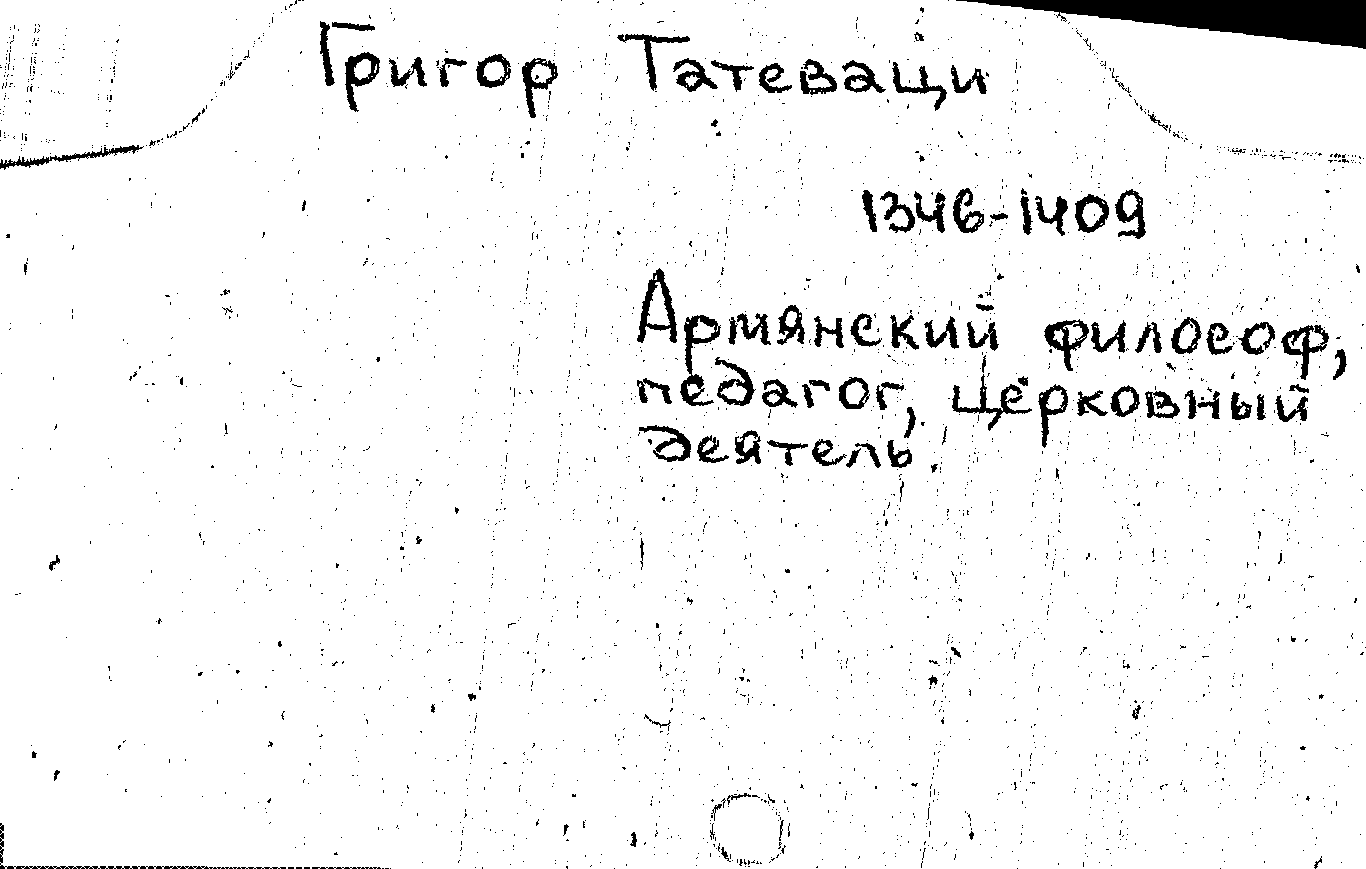 Григор Татеващи
1346-1409
Армянский философ,
педагог, церковный
деятель.